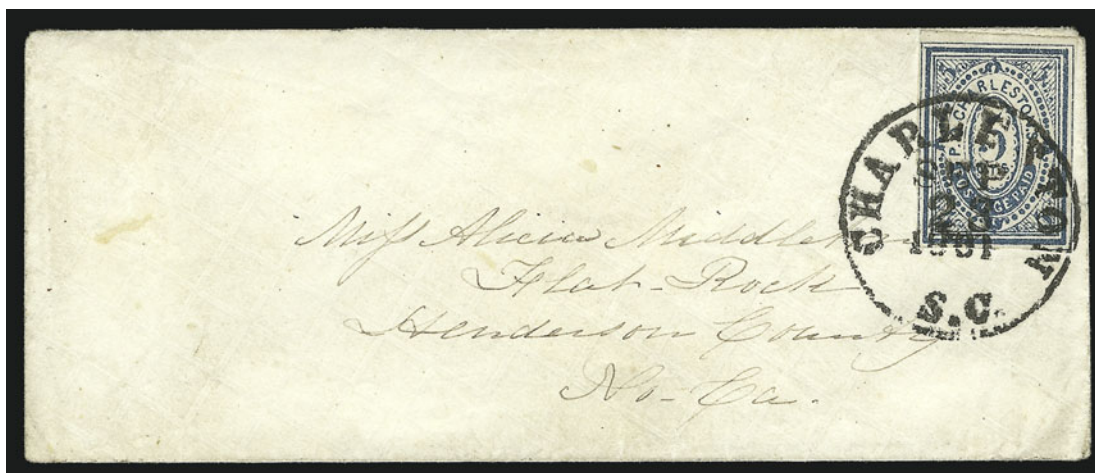 5 5
P.O. CHARLESTON, S.C.
5
CTS.
POSTAGE PAID
CHARLESTON
SEP
23
1861
S.C.
Miss Alicia Middleton
Flat-Rock
Henderson County
No-Ca.